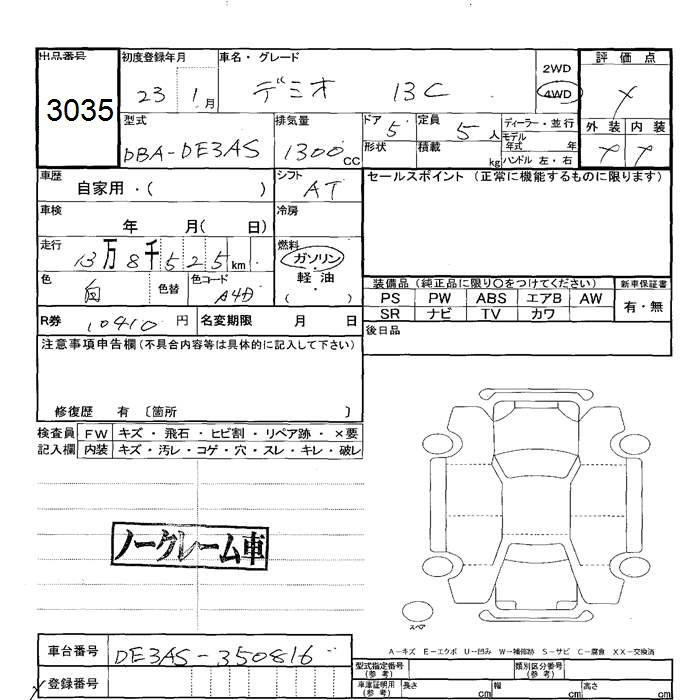 出品番号 初度登録年月 車名・グレード 2WD 評価点
3035 23 1月 デミオ 13C 4WD
型式 排気量 ドア 定員 ディーラー・並行 外装 内装
DBA-DE3AS 1300cc 5 5人 モデル年式 年
形状 積載 kg ハンドル 左・右
車歴 自家用・( ) シフト AT セールスポイント (正常に機能するものに限ります)
車検 年 月( 日) 冷房
走行 13万8千525km 燃料 ガソリン・軽油・( )
色 白 色替 色コード A4D
装備品(純正品に限り○をつけてください) 新車保証書
PS PW ABS エアB AW 有・無
SR ナビ TV カワ
R券 10410円 名変期限 月 日 後日品
注意事項申告欄(不具合内容等は具体的に記入して下さい)
修復歴 有 〔箇所 〕
検査員 FW キズ・飛石・ヒビ割・リペア跡・×要
記入欄 内装 キズ・汚レ・コゲ・穴・スレ・キレ・破レ
ノークレーム車
スペア
A-キズ E-エクボ U-凹み W-補修跡 S-サビ C-腐食 XX-交換済
車台番号 DE3AS-350816
登録番号
型式指定番号(参考) 類別区分番号(参考)
車庫証明用(参考) 長さ cm 幅 cm 高さ cm